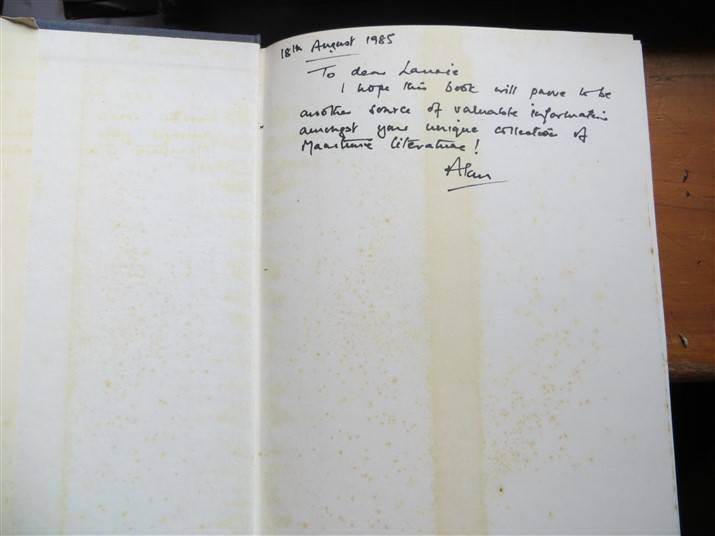 18th August 1985
To dear Laurie
I hope this book will prove to be
another source of valuable information
amongst your unique collection of
Maritime Literature!
Alan